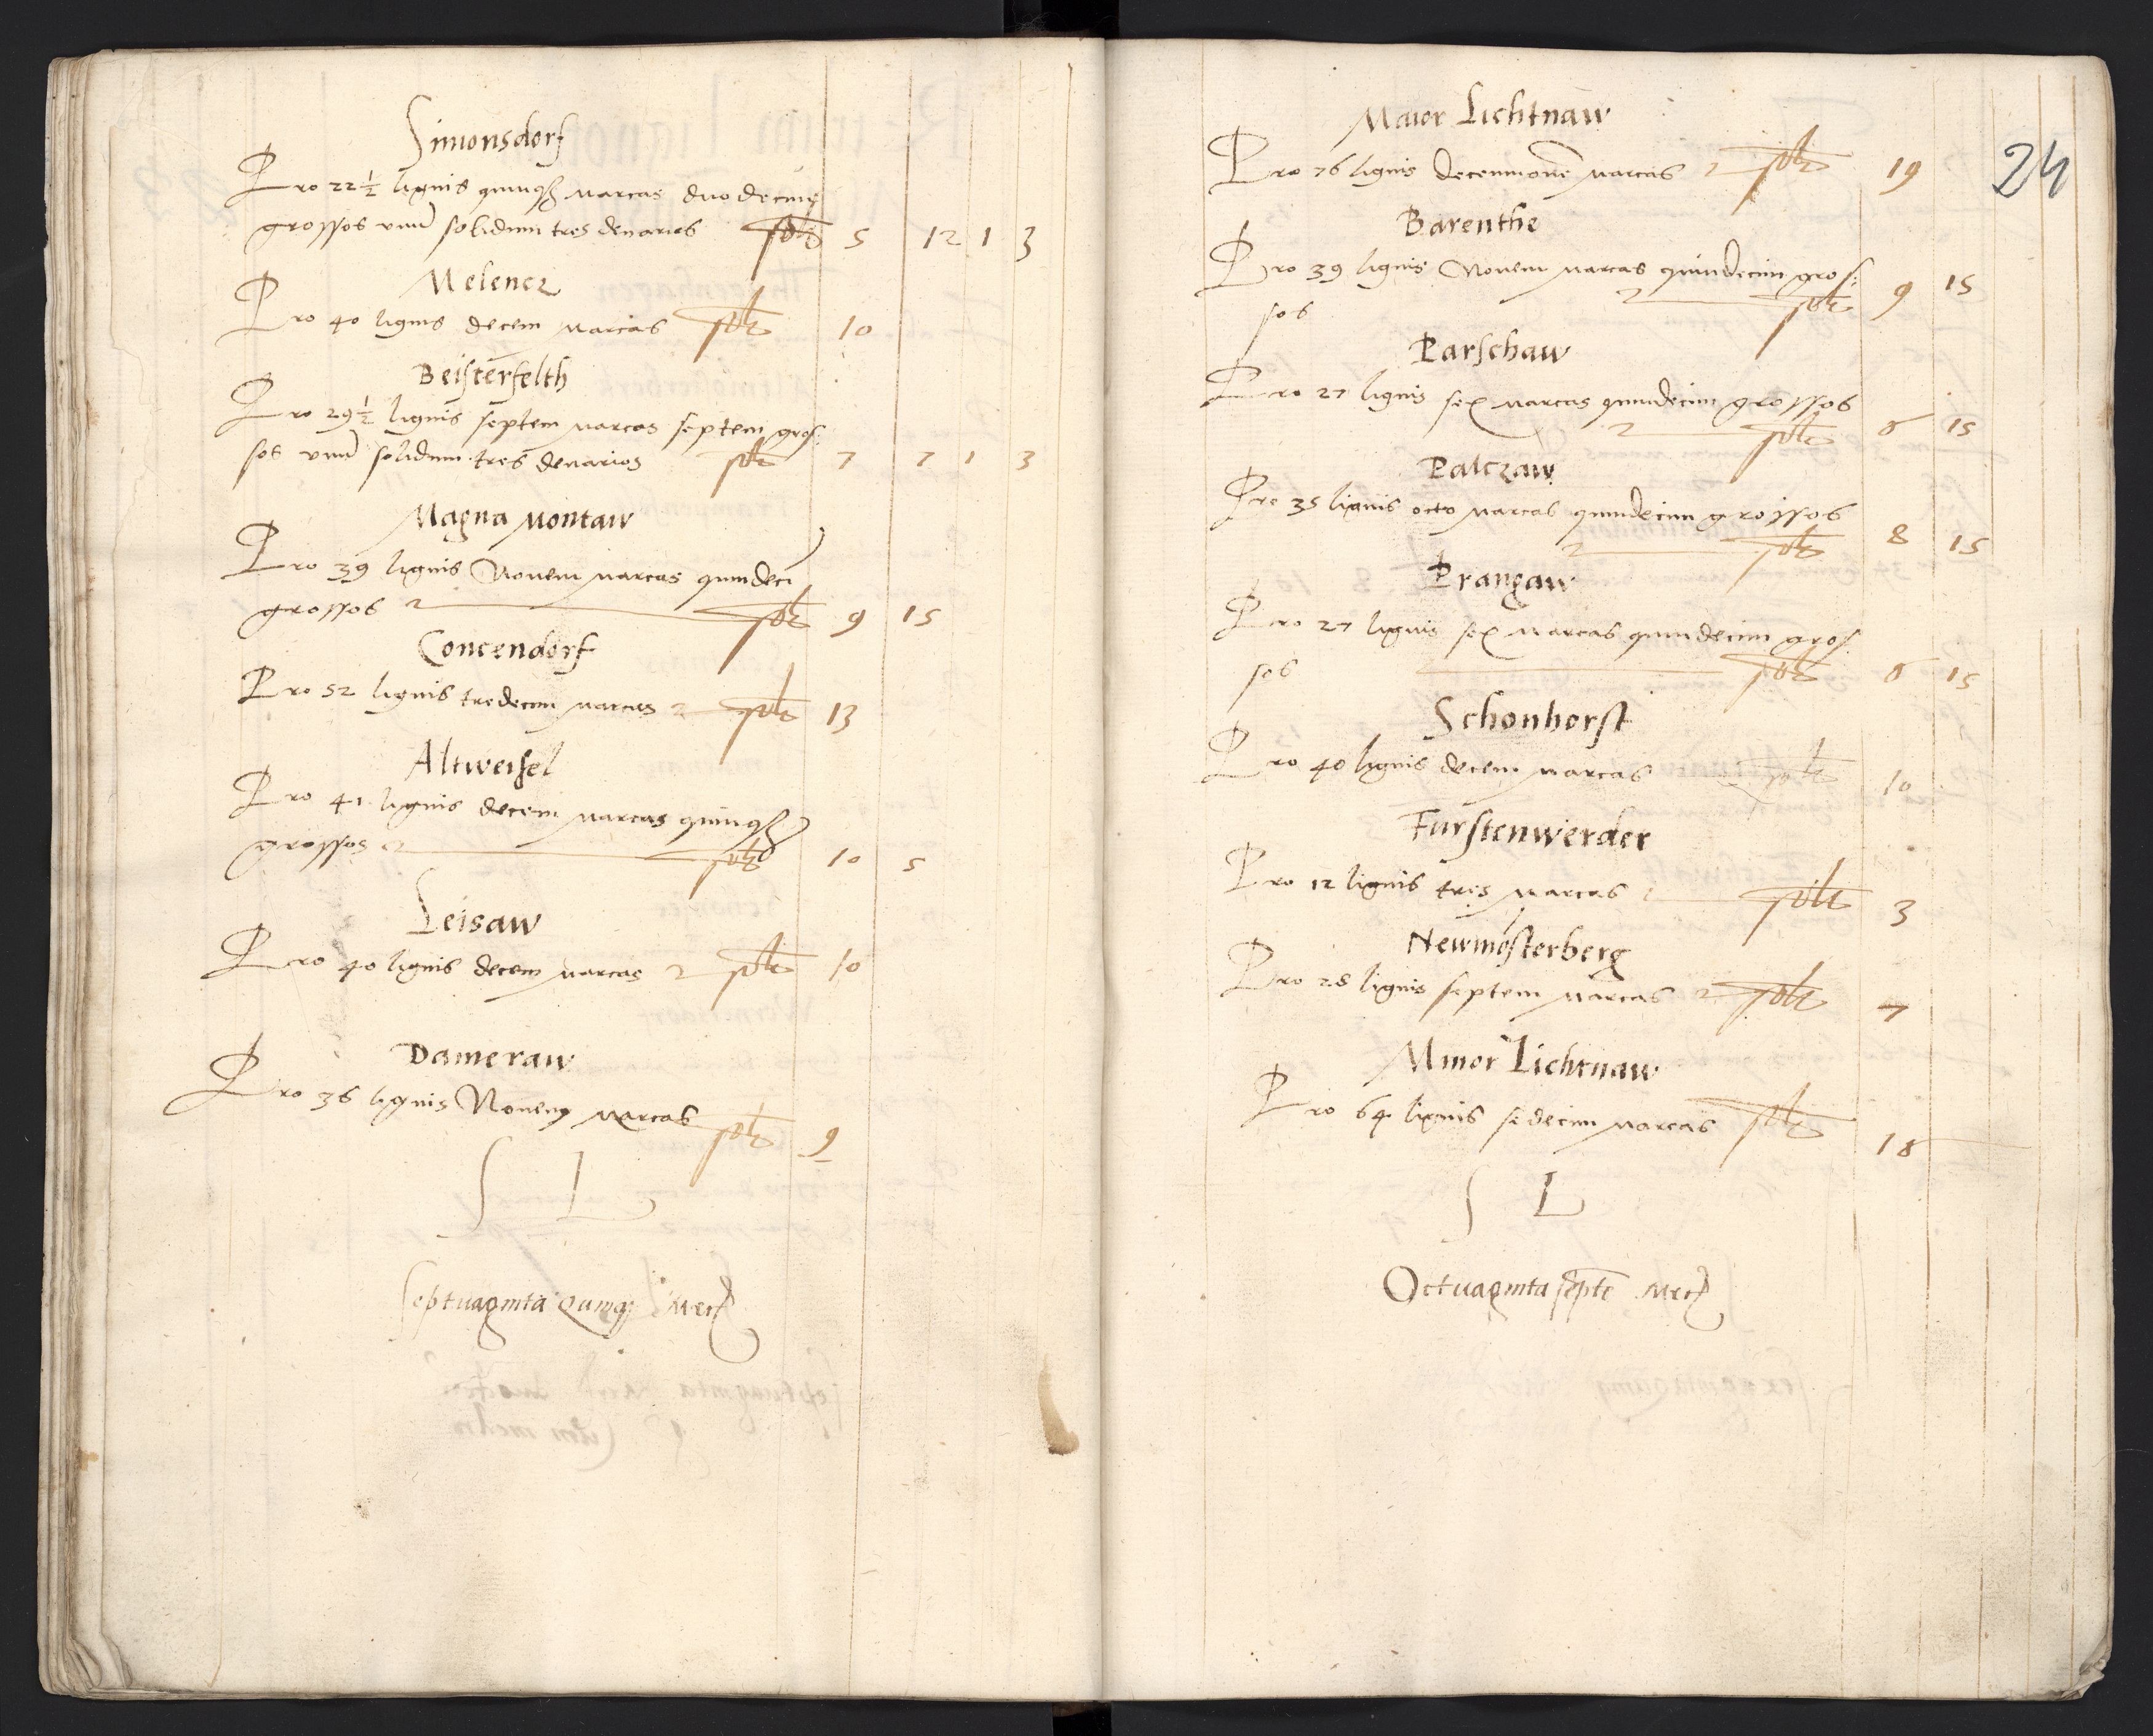 Simonsdorf
Pro 22½ lignis quinqȝ marcas duodecim
grossos unu͂ solidum tres denarios solt 5 12 1 3
Melencz
Pro 40 lignis decem marcas solt 10
Beisterfelth
Pro 29½ lignis septem marcas septem gros:
sos unu͂ solidum tres denarios solt 7 7 1 3
Magna Montaw
Pro 39 lignis Novem marcas quindeci͂
grossos solt 9 15
Concendorf
Pro 52 lignis tredecim marcas solt 13
Altweisel
Pro 41 lignis decem marcas quinqȝ
grossos solt 10 5
Leisaw
Pro 40 lignis decem marcas solt 10
Dameraw
Pro 36 lignis Novem marcas solt 9
S L
Septuaginta Quinqȝ Merc
Maior Lichtnaw 24
Pro 76 lignis decemnove͂ marcas solt 19
Barenthe
Pro 39 lignis Novem marcas quindecim gros:
sos solt 9 15
Parschaw
Pro 27 lignis sex marcas quindecim grossos
solt 6 15
Palczaw
Pro 35 lignis octo marcas quindecim grossos
solt 8 15
Prangaw
Pro 27 lignis sex marcas quindecim gros
sos solt 6 15
Schonhorst
Pro 40 lignis decem marcas solt 10
Furstenwerder
Pro 12 lignis tres marcas solt 3
Newmosterberg
Pro 28 lignis septem marcas solt 7
Minor Lichtnaw
Pro 64 lignis sedecim marcas solt 16
S L
Octuaginta septe͂ Merc